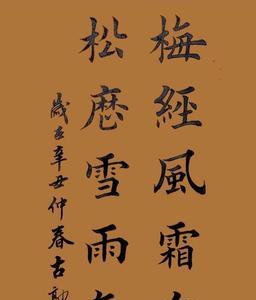 梅經風霜
松厯雪雨
歲在辛丑仲春古